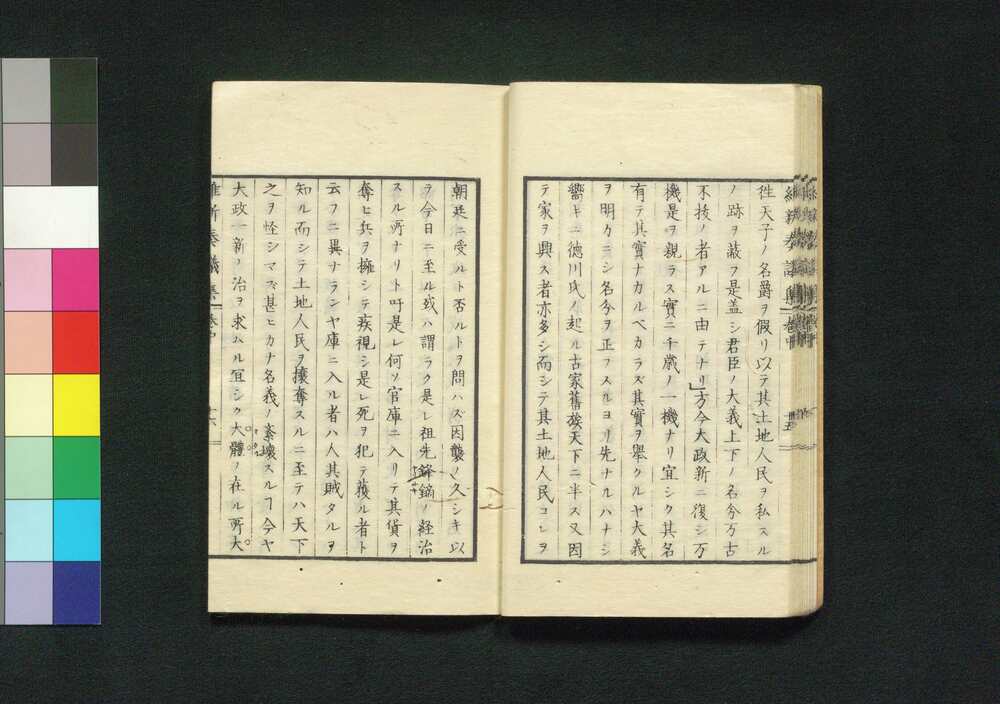 徃天子ノ名爵ヲ假リ以テ其土地人民ヲ私スル
ノ跡ヲ蔽フ是盖シ君臣ノ大義上下ノ名分万古
不抜ノ者アルニ由テナリ」方今大政新ニ復シ万
機是ヲ親ラス實ニ千歳ノ一機ナリ宜シク其名
有テ其實ナカルベカラズ其實ヲ舉クルヤ大義
ヲ明カニシ名分ヲ正フスルヨリ先ナルハナシ
嚮キニ德川氏ノ起ル古家舊族天下ニ半ス又因
テ家ヲ興ス者亦多シ而シテ其土地人民コレヲ
朝廷ニ受ルト否ルトヲ問ハズ因襲ノ久シキ以
テ今日ニ至ル或ハ謂ラク是レ祖先鋒鏑ノ経治
スル所ナリト吁是レ何ソ官庫ニ入リテ其貨ヲ
奪ヒ兵ヲ擁シテ疾視シ是レ死ヲ犯テ獲ル者ト
云フニ異ナランヤ庫ニ入ル者ハ人其賊タルヲ
知ル而シテ土地人民ヲ攘奪スルニ至テハ天下
之ヲ怪シマズ甚ヒカナ名義ノ紊壊スルヿ今ヤ
大政一新ノ治ヲ求ハル宜シク大體ノ在ル所大
維新奏議集 巻中